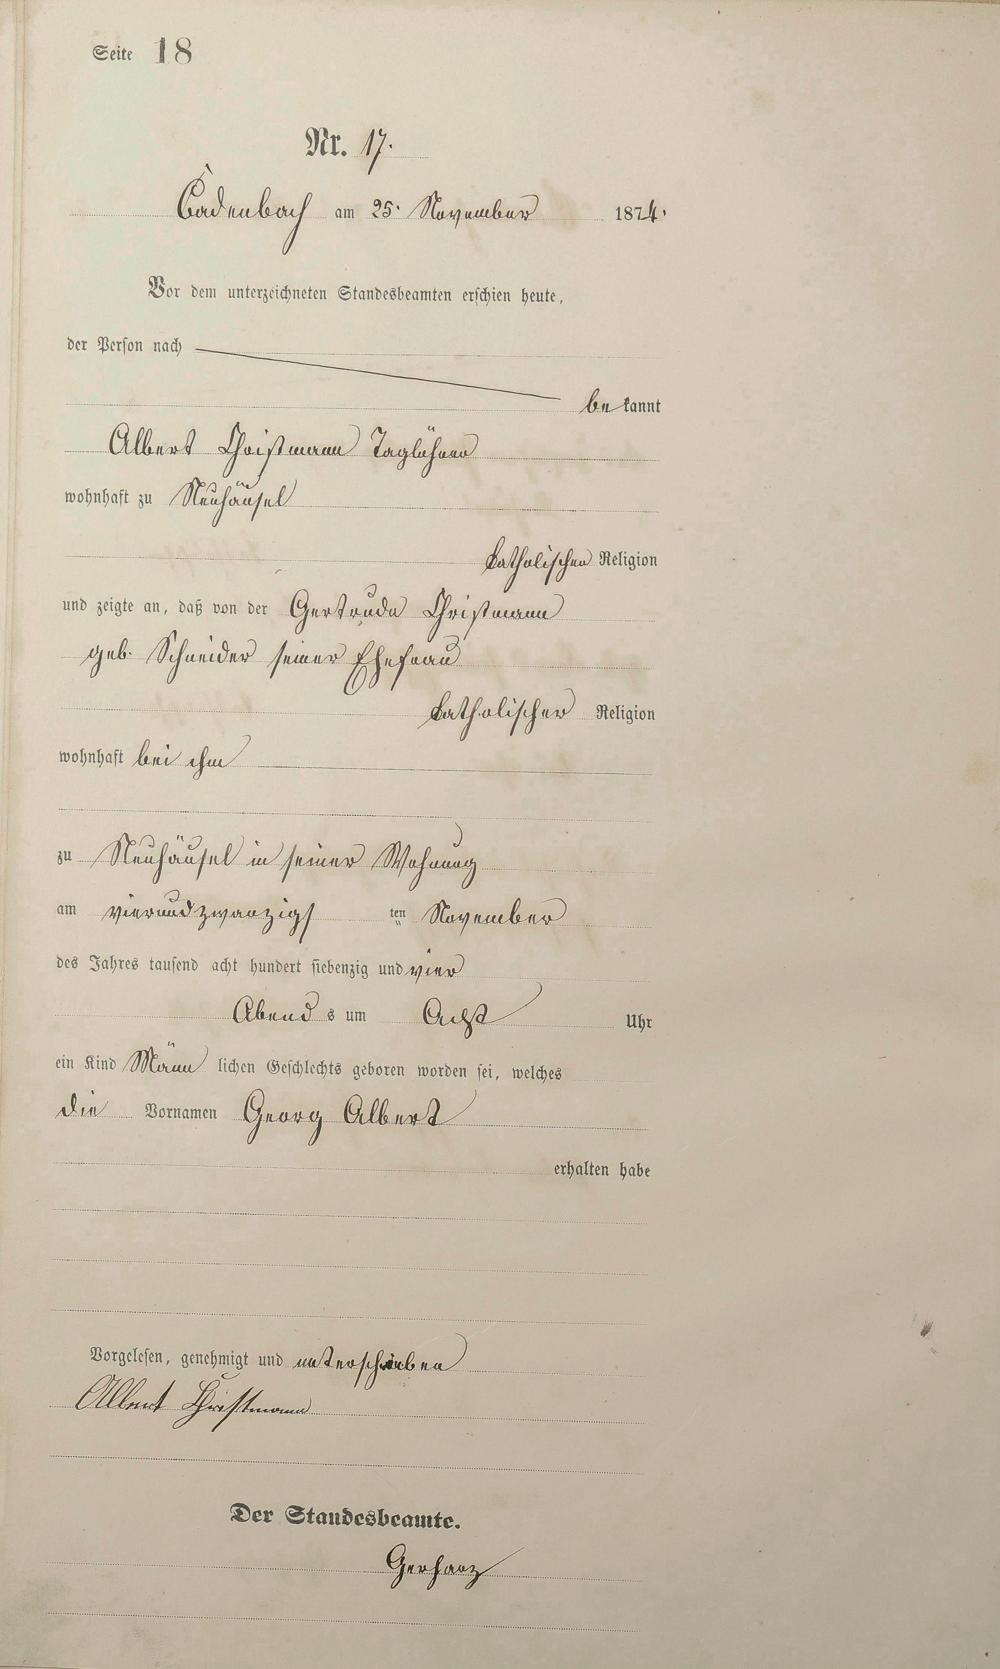 Seite 18
Nr. 17.
Cadenbach am 25. November 1874.
Vor dem unterzeichneten Standesbeamten erschien heute,
der Person nach
bekannt
Albert Christmann Taglöhner
wohnhaft zu Neuhäusel
katholischer Religion
und zeigte an, daß von der Gertrude Christmann
geb. Schneider seiner Ehefrau
katholischer Religion
wohnhaft bei ihm
zu Neuhäusel in seiner Wohnung
am vierundzwanzigs ten November
des Jahres tausend acht hundert siebenzig und vier
Abend s um Acht Uhr
ein Kind Männ lichen Geschlechts geboren worden sei, welches
die Vornamen Georg Albert
erhalten habe
Vorgelesen, genehmigt und unterschrieben
Albert Christmann
Der Standesbeamte.
Gerharz